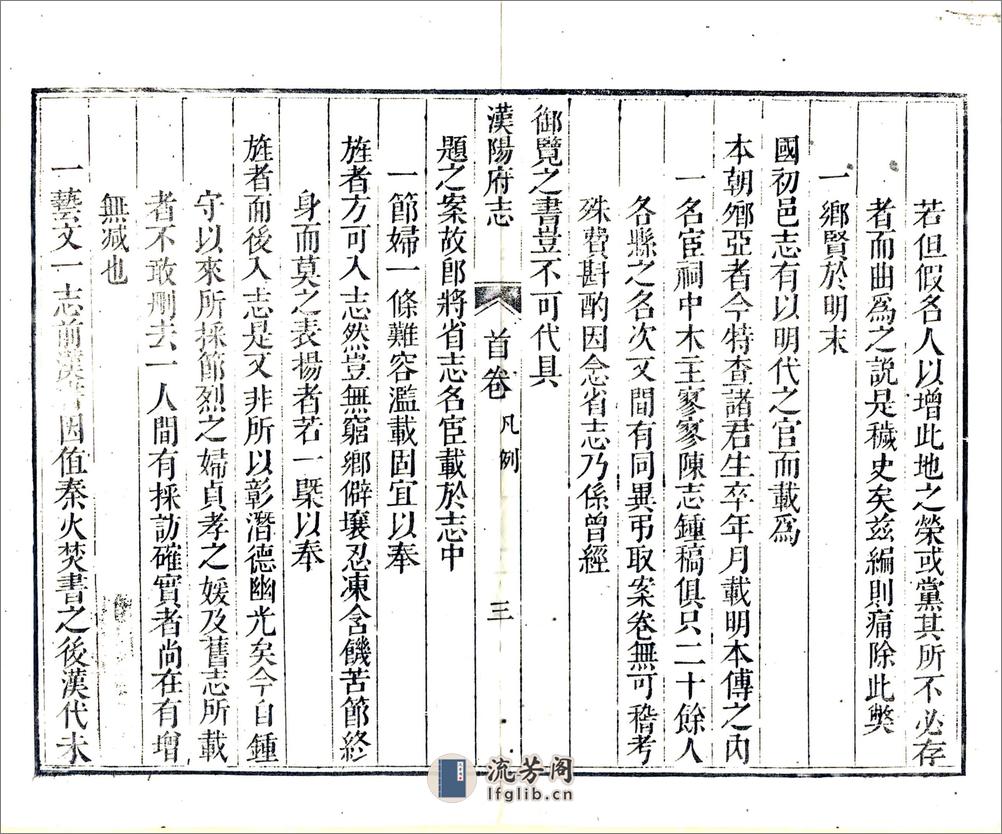 若但假名人以增此地之榮或黨其所不必存
者而曲爲之説是穢史矣兹編則痛除此獘
一鄉賢於明末
國初邑志有以明代之官而載爲
本朝鄉亞者今特查諸君生卒年月載明本傳之内
一名宦祠中木主寥寥陳志鍾稿俱只二十餘人
各縣之名次又間有同異弔取案卷無可稽考
殊費斟酌因念省志乃係曾經
御覽之書豈不可代具
漢陽府志
首卷
凡例
三
題之案故郎將省志名宦載於志中
一節婦一條難容濫載固宜以奉
旌者方可入志然豈無窮鄉僻壤忍凍含饑苦節終
身而莫之表揚者若一槩以奉
旌者而後入志是又非所以彰潛德幽光矣今自鍾
守以來所採節烈之婦貞孝之媛及舊志所載
者不敢刪去一人間有採訪確實者尚在有增
無减也
一藝文一志前漢因值秦火焚書之後漢代未
流芳阁
lfglib.cn